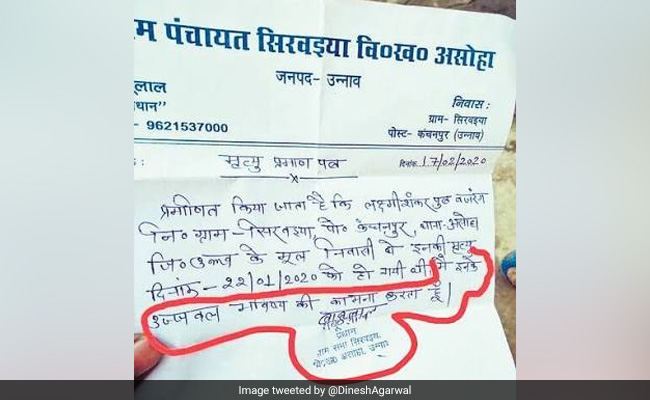 म पंचायत सिरवइया वि०ख० असोहा
जनपद- उन्नाव
ूलाल
धान"
- 9621537000
निवास :
ग्राम- सिरवइया
पोस्ट- कंचनपुर (उन्नाव)
मृत्यु प्रमाण पत्र
दिनांक 17/02/2020
प्रमाणित किया जाता है कि लक्ष्मीशंकर पुत्र बजरंग
नि० ग्राम- सिरवइया, पो० कंचनपुर, थाना-असोहा
जि० उन्नाव के मूल निवासी थे इनकी मृत्यु
दिनांक- 22/01/2020 को हो गयी थी, मै इनके
उज्ज्वल भविष्य की कामना करता हूँ।
प्रधान
ग्राम सभा सिरवइया
वि०ख० असोहा, उन्नाव
Image tweeted by @DineshAgarwal